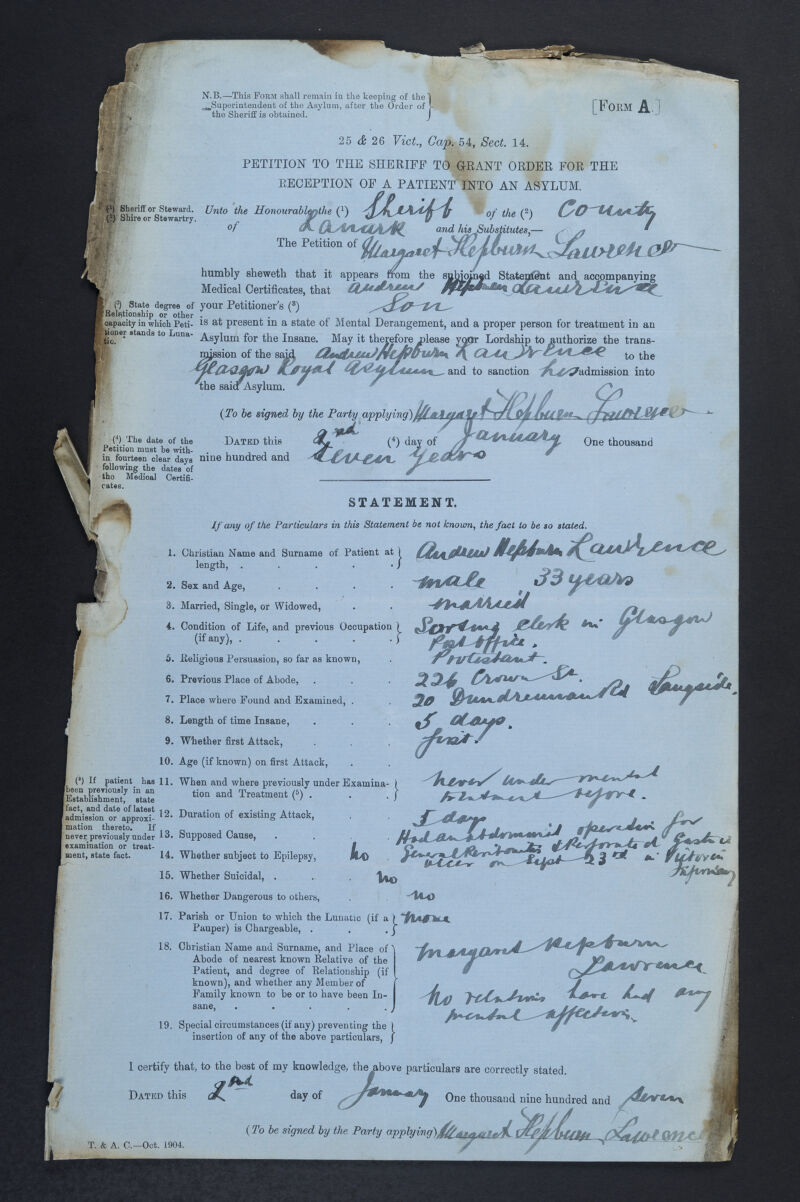 N.B.—This Form shall remain in the keeping of the
Superintendent of the Asylum, after the Order of
the Sheriff is obtained.
[Form A.]
25 & 26 Vict., Cap. 54, Sect. 14.
PETITION TO THE SHERIFF TO GRANT ORDER FOR THE
RECEPTION OF A PATIENT INTO AN ASYLUM.
(¹) Sheriff or Steward.
(²) Shire or Stewartry.
Unto the Honourable the (¹) Sheriff of the (²) County
of Lanark and his Substitutes,—
The Petition of Margaret Hepburn Lawrence
humbly sheweth that it appears from the subjoined Statement and accompanying
Medical Certificates, that Andrew Hepburn Lawrence
(³) State degree of
Relationship or other
capacity in which Peti-
tioner stands to Luna-
tic.
your Petitioner's (³) Son
is at present in a state of Mental Derangement, and a proper person for treatment in an
Asylum for the Insane. May it therefore please your Lordship to authorize the trans-
mission of the said Andrew Hepburn Lawrence to the
Glasgow Royal Asylum and to sanction his admission into
the said Asylum.
(To be signed by the Party applying) Margaret Hepburn Lawrence
(⁴) The date of the
Petition must be with-
in fourteen clear days
following the dates of
the Medical Certifi-
cates.
Dated this 2nd (⁴) day of January One thousand
nine hundred and Seven Years
STATEMENT.
If any of the Particulars in this Statement be not known, the fact to be so stated.
1. Christian Name and Surname of Patient at
length, . Andrew Hepburn Lawrence
2. Sex and Age, male 33 years
3. Married, Single, or Widowed, married
4. Condition of Life, and previous Occupation Sorting clerk in Glasgow
(if any), . Post Office.
5. Religious Persuasion, so far as known, Protestant.
6. Previous Place of Abode, 226 Crown St.
7. Place where Found and Examined, 20 Dundrennan Rd Langside.
8. Length of time Insane, 5 days.
9. Whether first Attack, first.
10. Age (if known) on first Attack,
(⁵) If patient has
been previously in an
Establishment, state
fact, and date of latest
admission or approxi-
mation thereto. If
never previously under
examination or treat-
ment, state fact.
11. When and where previously under Examina- never under mental
tion and Treatment (⁵) . treatment before.
12. Duration of existing Attack, 5 days
13. Supposed Cause, Had an abdominal operation for
General Peritonitis & Perforated Gastric
ulcer on Sept 23rd in Victoria
Infirmary
14. Whether subject to Epilepsy, No
15. Whether Suicidal, . No
16. Whether Dangerous to others, No
17. Parish or Union to which the Lunatic (if a None
Pauper) is Chargeable, .
18. Christian Name and Surname, and Place of Margaret Hepburn
Abode of nearest known Relative of the Lawrence
Patient, and degree of Relationship (if
known), and whether any Member of
Family known to be or to have been In- No relations have had any
sane, mental affections.
19. Special circumstances (if any) preventing the
insertion of any of the above particulars,
I certify that, to the best of my knowledge, the above particulars are correctly stated.
Dated this 2nd day of January One thousand nine hundred and Seven
(To be signed by the Party applying) Margaret Hepburn Lawrence
T. & A. C.—Oct. 1904.